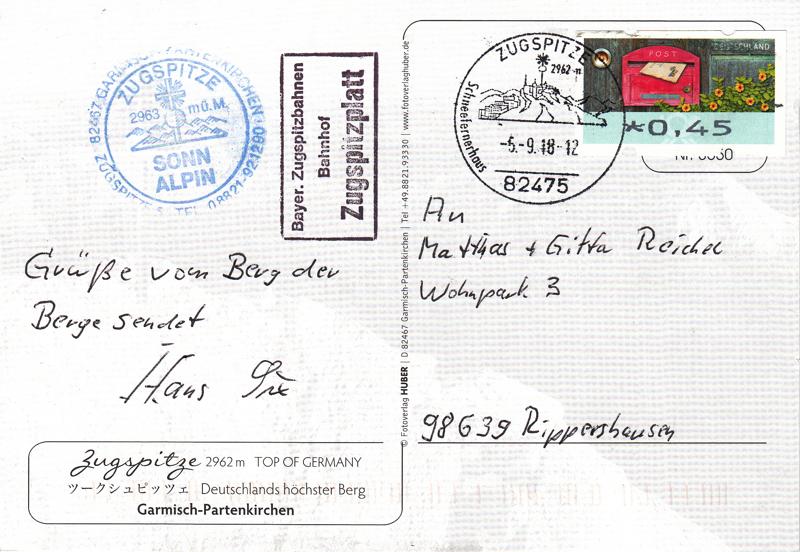 82467 GARMISCH-PARTENKIRCHEN
ZUGSPITZE
2963 m ü. M.
SONN
ALPIN
TEL. 08821-921280
Bayer. Zugspitzbahnen
Bahnhof
Zugspitzplatt
Grüße vom Berg der
Berge sendet
Hans
Zugspitze 2962 m TOP OF GERMANY
ツークシュピッツェ | Deutschlands höchster Berg
Garmisch-Partenkirchen
© Fotoverlag HUBER | D 82467 Garmisch-Partenkirchen | Tel +49.8821.93330 | www.fotoverlaghuber.de
ZUGSPITZE
2962 m
Schneefernerhaus
-5.-9.18-12
82475
POST
DEUTSCHLAND
*0,45
An
Matthas + Gitta Reichel
Wohnpark 3
98639 Rippershausen